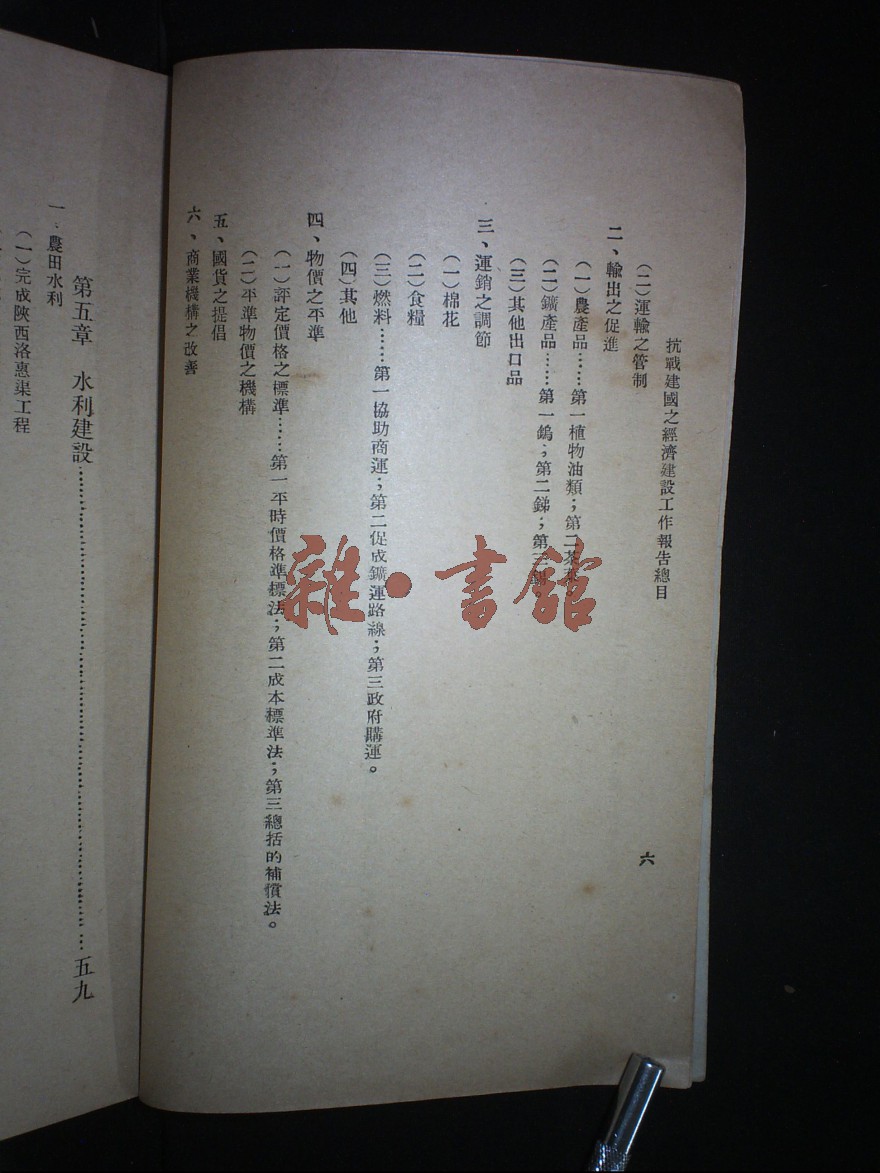 抗戰建國之經濟建設工作報告總目
六
（二）運輸之管制
二、輸出之促進
（一）農產品……第一植物油類；第二茶葉
（二）鑛產品……第一鎢；第二銻；第三錫
（三）其他出口品
三、運銷之調節
（一）棉花
（二）食糧
（三）燃料……第一協助商運；第二促成鑛運路線；第三政府購運。
（四）其他
四、物價之平準
（一）評定價格之標準……第一平時價格準標法；第二成本標準法；第三總括的補償法。
（二）平準物價之機構
五、國貨之提倡
六、商業機構之改善
第五章 水利建設……五九
一．農田水利
（一）完成陝西洛惠渠工程
雜·書館